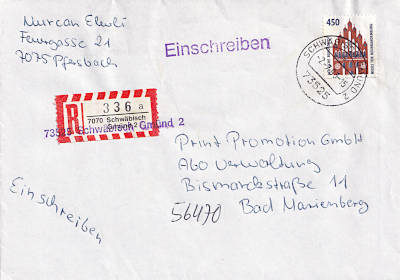 Einschreiben
Feuergasse 21
7075
450
SCHWÄB
73525
R
336 a
7070 Schwäbisch
Gmünd 2
73525 Schwäbisch Gmünd 2
Print Promotion GmbH
Abo Verwaltung
Bismarckstraße 11
56470 Bad Marienberg
Einschreiben